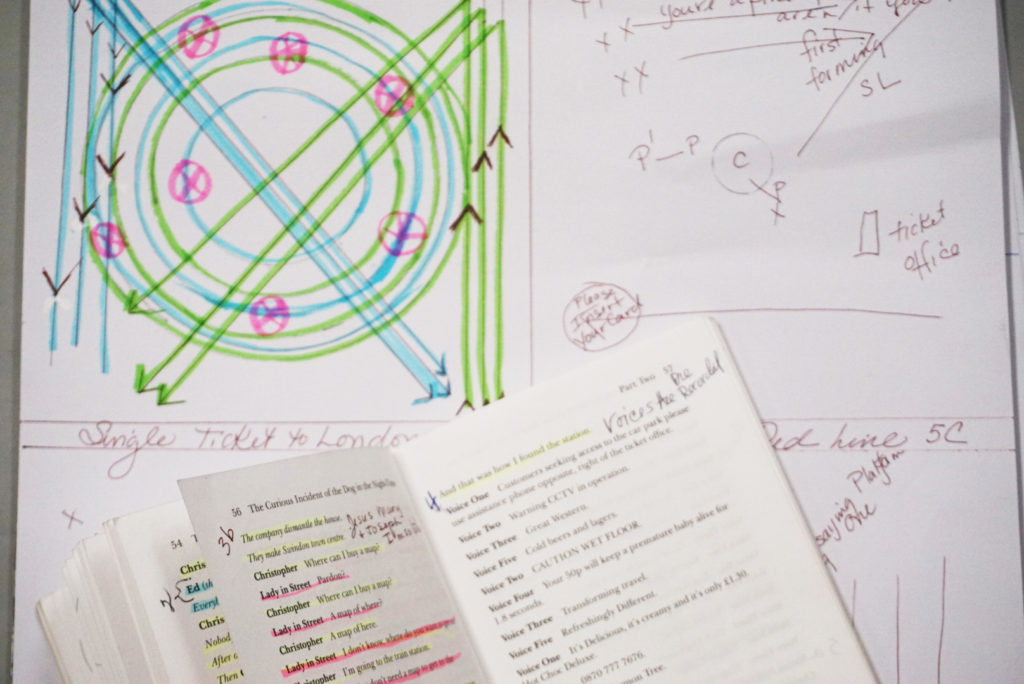 you're
area / if you
X X
first
forming
X X
SL
P' — P
C
P
X
ticket
office
Please
Insert
Your Card
Single Ticket to London
Red Line 5C
X
saying Platform
One
54
Chris
Ed (sh
Everyl
Chris
Nobod
After a
Then
56 The Curious Incident of the Dog in the Night-Time
3b
The company dismantle the house.
They make Swindon town centre.
Jesus Mary
+ Joseph
Christopher Where can I buy a map?
Lady in Street Pardon?
Christopher Where can I buy a map?
Lady in Street A map of where?
Christopher A map of here.
Lady in Street I don't know, where do you want to get to?
Christopher I'm going to the train station.
don't need a map to get to the
Part Two 57
Voices Are Pre Recorded
4
And that was how I found the station.
Voice One Customers seeking access to the car park please
use assistance phone opposite, right of the ticket office.
Voice Two Warning CCTV in operation.
Voice Three Great Western.
Voice Five Cold beers and lagers.
Voice Two CAUTION WET FLOOR
Voice Four Your 50p will keep a premature baby alive for
1.8 seconds.
Voice Three Transforming travel.
Voice Five Refreshingly Different.
Voice One It's Delicious, it's creamy and it's only £1.30
Hot Choc Deluxe.
0870 777 7676.
Lemon Tree.